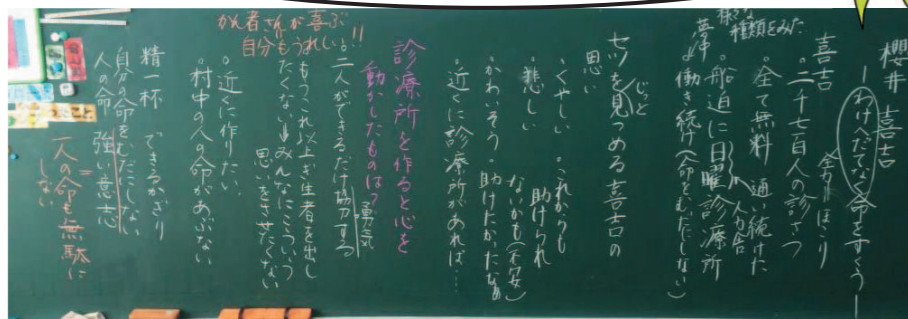 櫻井 喜吉
―わけへだてなく命をすくう―
喜吉
様々な
種類をみた
・二千七百人の診さつ
全力 ほこり
・全て無料 通い続けた
・船迫に日曜診療所
夢中
働き続け(命をむだにしない)
セツを見つめる喜吉の
じっと
思い
・くやしい ・これからも
助けられ
ないかも(不安)
・悲しい
・かわいそう・助けたかったなあ
・近くに診療所があれば…
診療所を作ると心を
動かしたものは?
・二人ができるだけ協力する
勇気
・もうこれ以上ぎ生者を出し
たくない→みんなにこういう
思いをさせたくない
かん者さんが喜ぶ
自分もうれしい!!
・近くに作りたい
・村中の人の命があぶない
精一杯 できるかぎり
自分の命をむだにしない
人の命 強い意志
一人の命も無駄に
しない